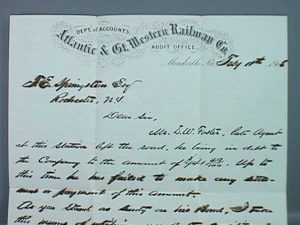 DEPT. OF ACCOUNTS.
Atlantic & Gt. Western Railway Co.
AUDIT OFFICE.
Meadville, Pa. Feby 10th 186
J. E. Springsteen Esq
Rochester, N.Y.
Dear Sir,
Mr. D. W. Foster, late Agent
at this Station left the road, he being in debt to
the Company to the amount of
Up to
this time he has failed to make any
a payment of this amount.
As you stand as Surety on his Bond, I take
this means of